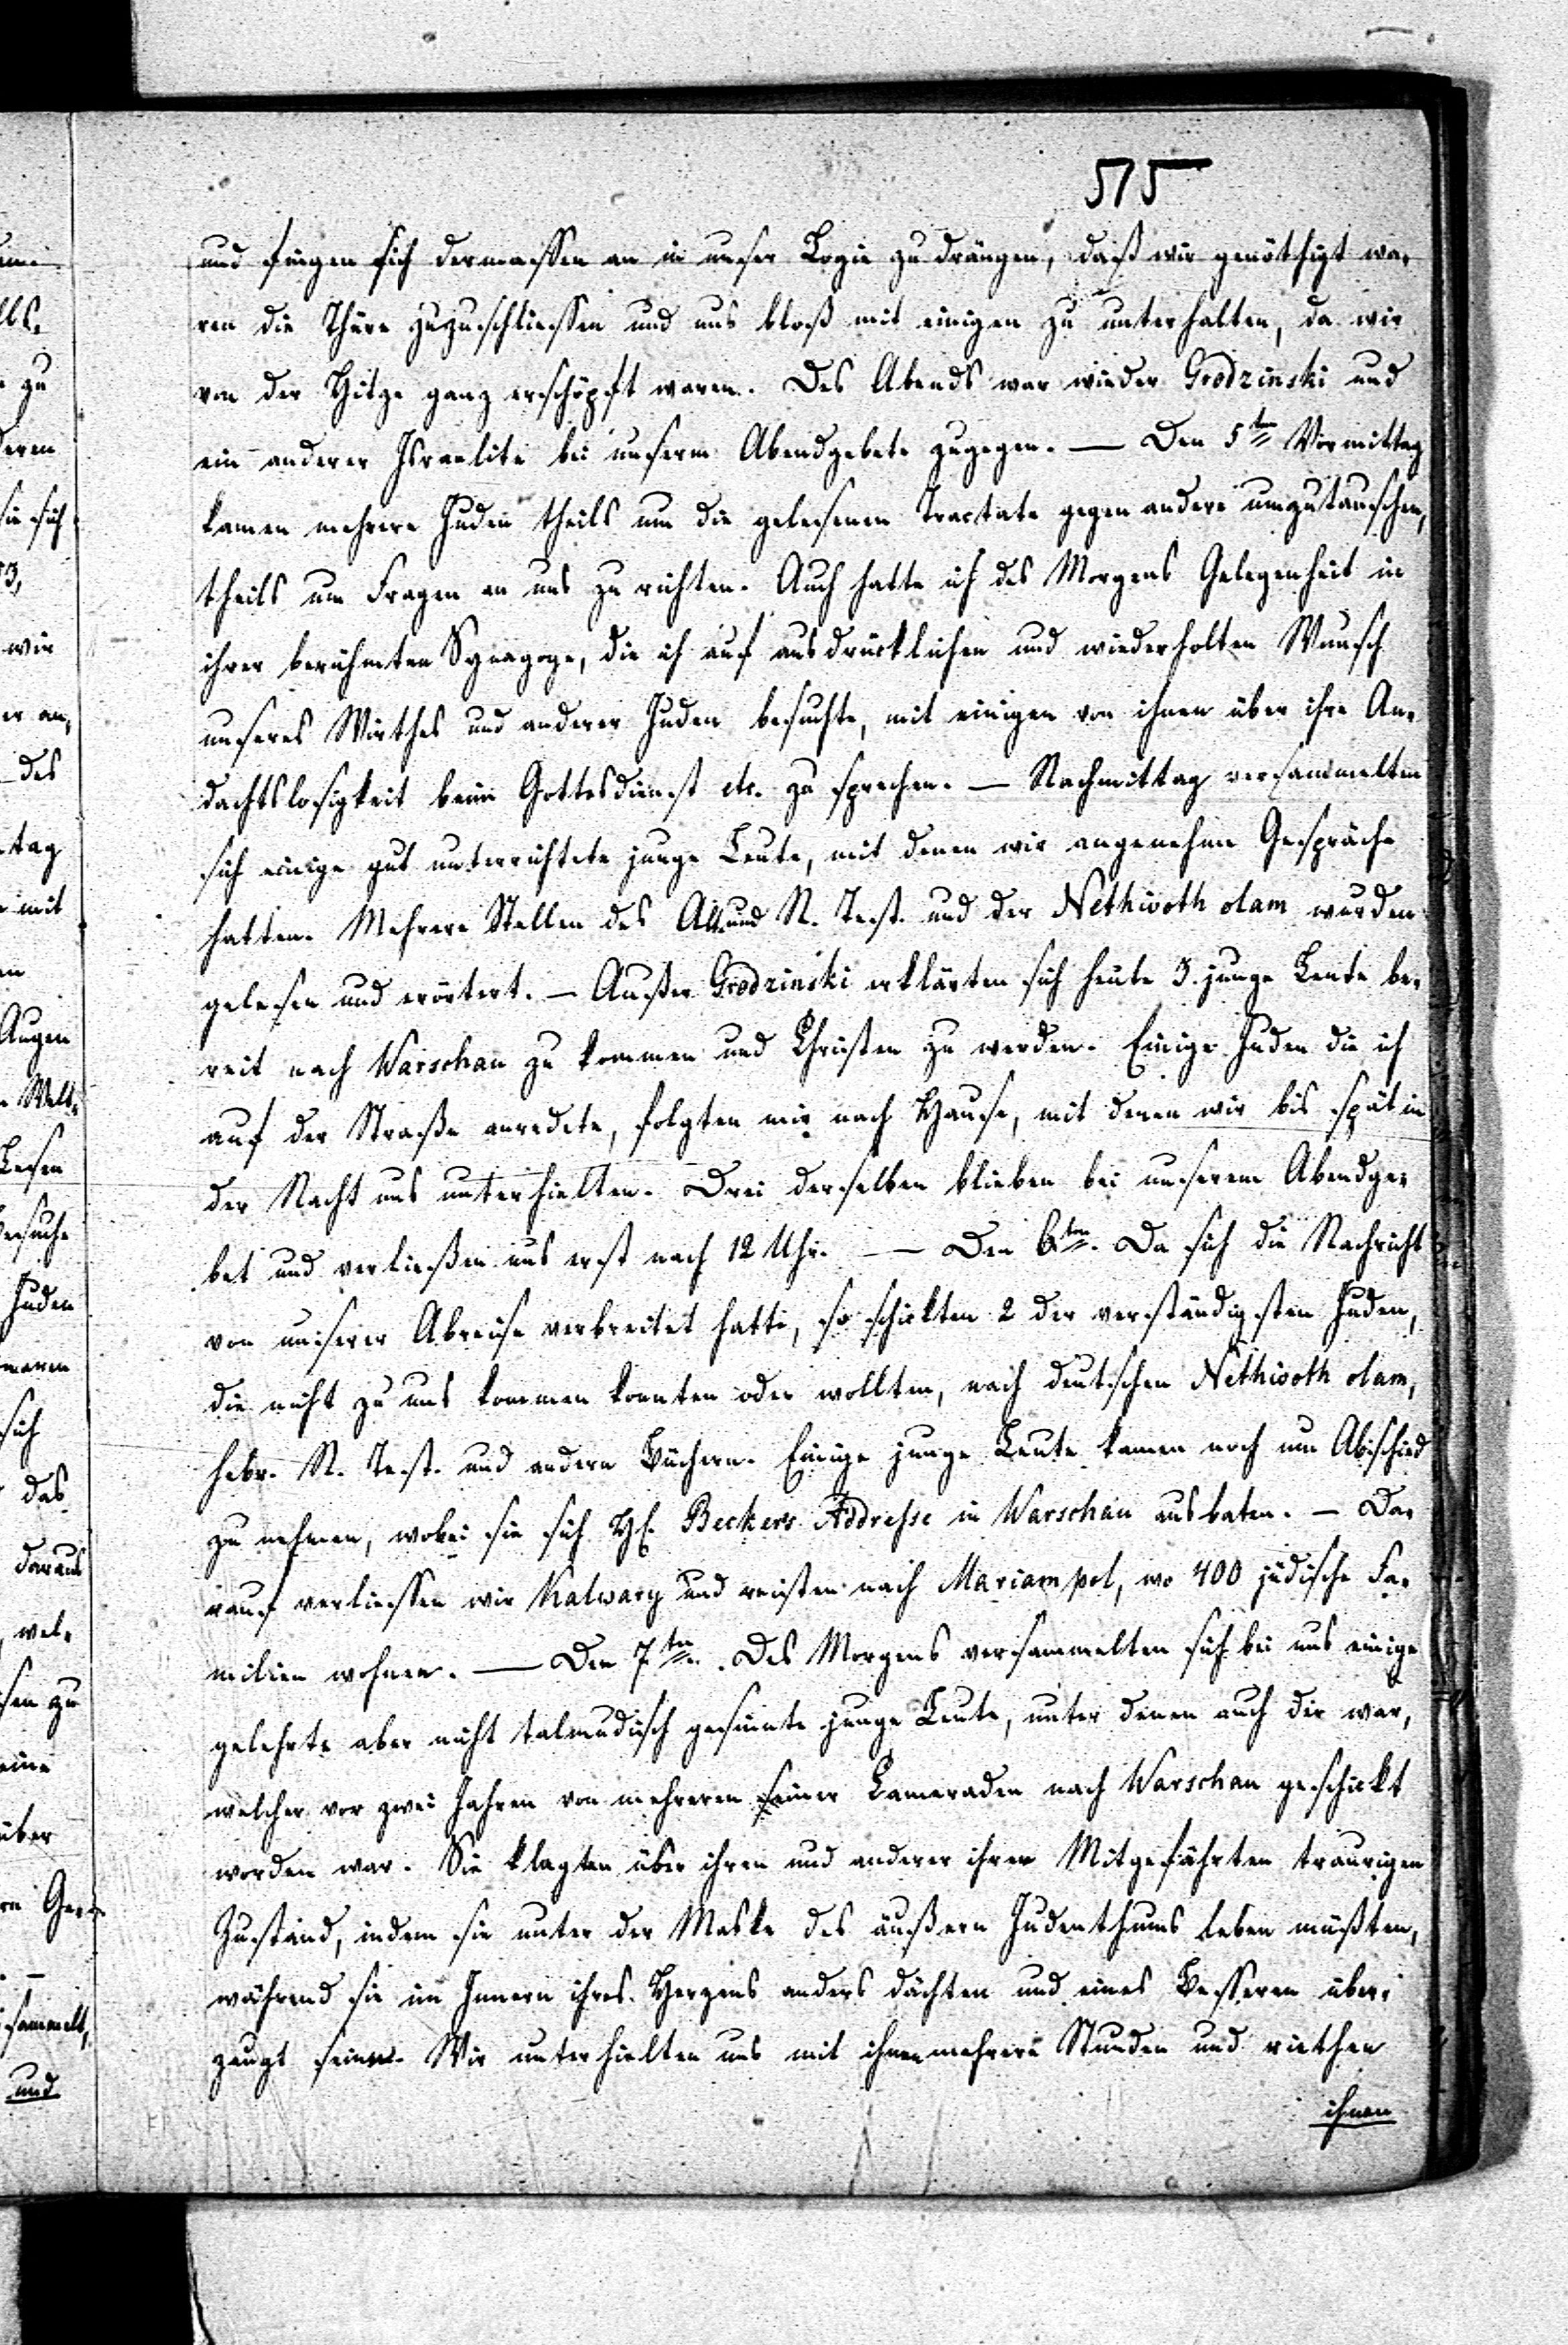 515
und fingen sich dermassen an in unser Logie zu drängen, daß wir genöthigt wa-
ren die Thüre zuzuschliessen und uns bloß mit einigen zu unterhalten, da wir
von der Hitze ganz erschöpft waren. Des Abends war wieder Grodzinski und
ein anderer Israelite bei unserm Abendgebete zugegen. — Den 5ten Vormittag
kamen mehrere Juden theils um die gelesenen Tractate gegen andere umzutauschen,
theils um Fragen an uns zu richten. Auch hatte ich des Morgens Gelegenheit in
ihrer berühmten Synagoge, die ich auf ausdrücklichen und wiederholten Wunsch
unseres Wirthes und anderer Juden besuchte, mit einigen von ihnen über ihre An-
dachtslosigkeit beim Gottesdienst etc. zu sprechen. — Nachmittag versammelten
sich einige gut unterrichtete junge Leute, mit denen wir angenehme Gespräche
hatten. Mehrere Stellen des Alt. und N. Test. und der Nethivoth olam wurden
gelesen und erörtert. — Außer Grodzinski erklärten sich heute 3. junge Leute be-
reit nach Warschau zu kommen und Christen zu werden. Einige Juden die ich
auf der Straße anredete, folgten mir nach Hause, mit denen wir bis spät in
der Nacht uns unterhielten. Drei derselben blieben bei unserem Abendge-
bet und verließen uns erst nach 12 Uhr. — Den 6ten. Da sich die Nachricht
von unserer Abreise verbreitet hatte, so schickten 2 der verständigsten Juden,
die nicht zu uns kommen konnten oder wollten, nach deutschen Nethivoth olam,
hebr. N. Test. und andern Büchern. Einige junge Leute kamen noch um Abschied
zu nehmen, wobei sie sich H. Beckers Addresse in Warschau ausbaten. — Da-
rauf verliessen wir Kalwary und reisten nach Mariampol, wo 400 jüdische Fa-
milien wohnen. — Den 7ten. Des Morgens versammelten sich bei uns einige
gelehrte aber nicht talmudisch gesinnte junge Leute, unter denen auch der war,
welcher vor zwei Jahren von mehreren seiner Cameraden nach Warschau geschickt
worden war. Sie klagten über ihren und anderer ihrer Mitgefährten traurigen
Zustand, indem sie unter der Maske des äußern Judenthums leben müßten,
während sie im Innern ihres Herzens anders dächten und eines Besseren über-
zeugt seien. Wir unterhielten uns mit ihnen mehrere Stunden und riethen
ihnen